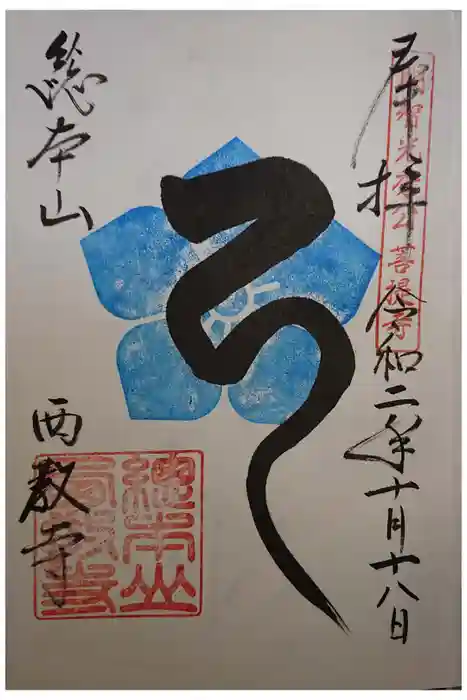 奉拝 令和二年十月十八日
明智光秀公菩提寺
総本山
西教寺
総本山
西教寺